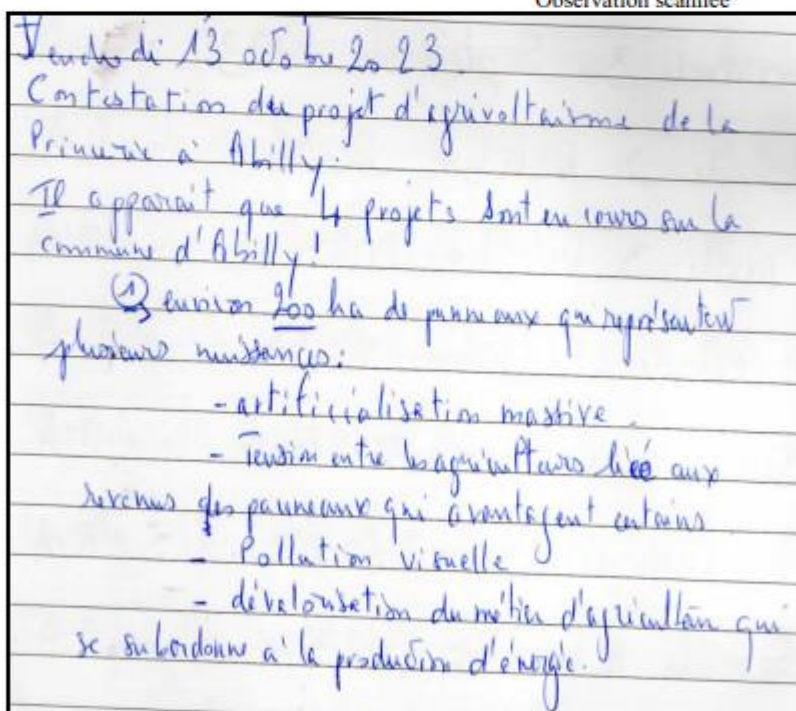 Observation scannée
Vendredi 13 octobre 2023.
Contestation du projet d'agrivoltaisme de la
à Abilly.
Il apparait que 4 projets sont en cours sur la
commune d'Abilly!
① environ 200 ha de panneaux qui représentent
plusieurs nuisances:
- artificialisation massive.
- Tension entre les agriculteurs liée aux
revenus des panneaux qui avantagent certains
- Pollution visuelle
- dévalorisation du métier d'agriculteur qui
se subordonne à la production d'énergie.